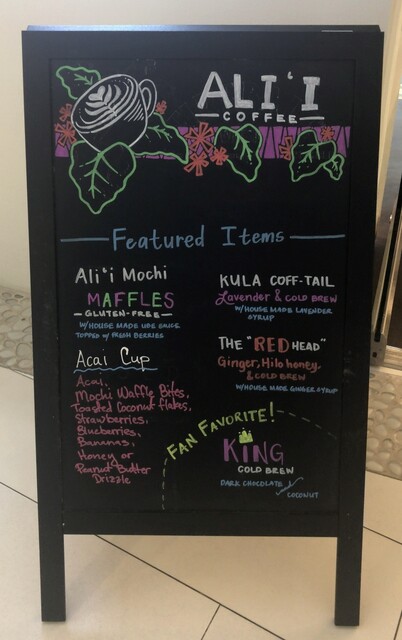 ALI'I
COFFEE
Featured Items
Ali'i Mochi
MAFFLES
GLUTEN-FREE
W/HOUSE MADE UBE SAUCE
TOPPED W/ FRESH BERRIES
Acai Cup
Acai,
Mochi Waffle Bites,
Toasted Coconut flakes,
Strawberries,
Blueberries,
Bananas,
Honey or
Peanut Butter
Drizzle
KULA COFF-TAIL
Lavender & COLD BREW
W/HOUSE MADE LAVENDER
SYRUP
THE "RED HEAD"
Ginger, Hilo honey,
& COLD BREW
W/HOUSE MADE GINGER SYRUP
FAN FAVORITE!
KING
COLD BREW
DARK CHOCOLATE
COCONUT